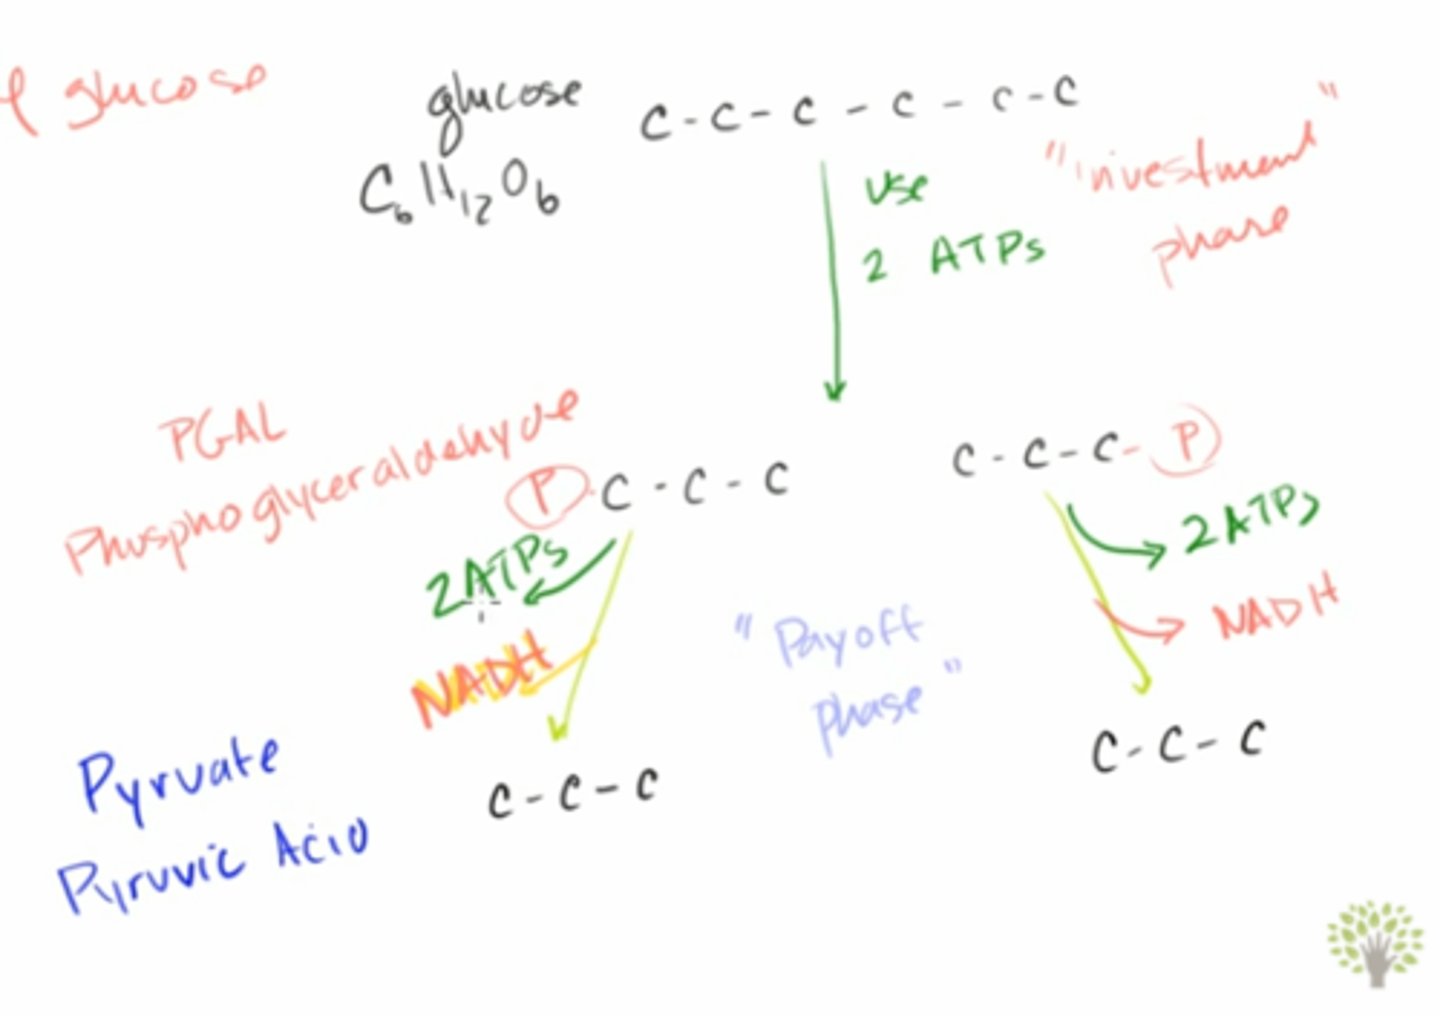 glucose
glucose
C6H12O6
C - C - C - C - C - C
use
2 ATPs
"investment
phase"
PGAL
Phosphoglyceraldehyde
P - C - C - C
C - C - C - P
2 ATPs
NADH
2 ATPs
NADH
"Payoff
phase"
C - C - C
C - C - C
Pyruvate
Pyruvic Acid